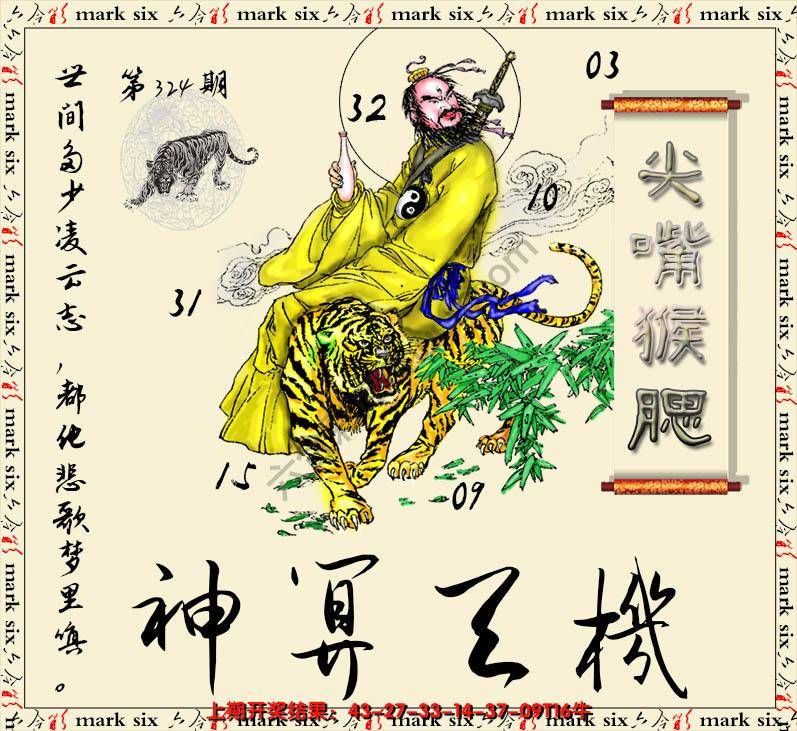 六合彩 mark six 六合彩 mark six 六合彩 mark six 六合彩 mark six 六合彩
mark six 六合彩 mark six 六合彩 mark six 六合彩 mark six
第324期
世间多少凌云志,都化悲歌梦里。
32
03
10
31
15
09
尖嘴猴腮
神算天機
mark six 六合彩 mark six 六合彩 mark six 六合彩 mark six
六合彩 mark six 六合彩 mark six 六合彩 mark six 六合彩 mark six 六合彩
上期开奖结果：43-27-33-14-37-09T16牛